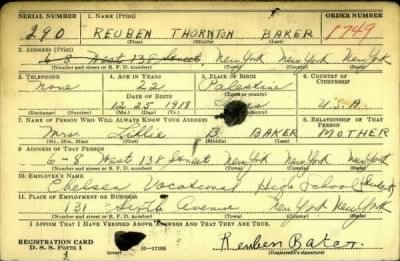 SERIAL NUMBER 1. NAME (Print) ORDER NUMBER
290 REUBEN THORNTON BAKER 1749
(First) (Middle) (Last)
2. ADDRESS (Print)
6-8 West 138 Street, New York New York New York
(Number and street or R. F. D. number) (Town) (County) (State)
3. TELEPHONE 4. AGE IN YEARS 5. PLACE OF BIRTH 6. COUNTRY OF CITIZENSHIP
None 22 Palestine
DATE OF BIRTH (Town or county)
12 25 1918 U.S.A.
(Exchange) (Number) (Mo.) (Day) (Yr.) (State or country)
7. NAME OF PERSON WHO WILL ALWAYS KNOW YOUR ADDRESS 8. RELATIONSHIP OF THAT PERSON
Mrs. Lillie B. BAKER MOTHER
(Mr., Mrs., Miss) (First) (Middle) (Last)
9. ADDRESS OF THAT PERSON
6-8 West 138 Street New York New York New York
(Number and street or R. F. D. number) (Town) (County) (State)
10. EMPLOYER'S NAME
Chelsea Vocational High School Student
11. PLACE OF EMPLOYMENT OR BUSINESS
131 Sixth Avenue New York New York
(Number and street or R. F. D. number) (Town) (County) (State)
I AFFIRM THAT I HAVE VERIFIED ABOVE ANSWERS AND THAT THEY ARE TRUE.
REGISTRATION CARD
D. S. S. Form 1 16-17105 Reuben Baker